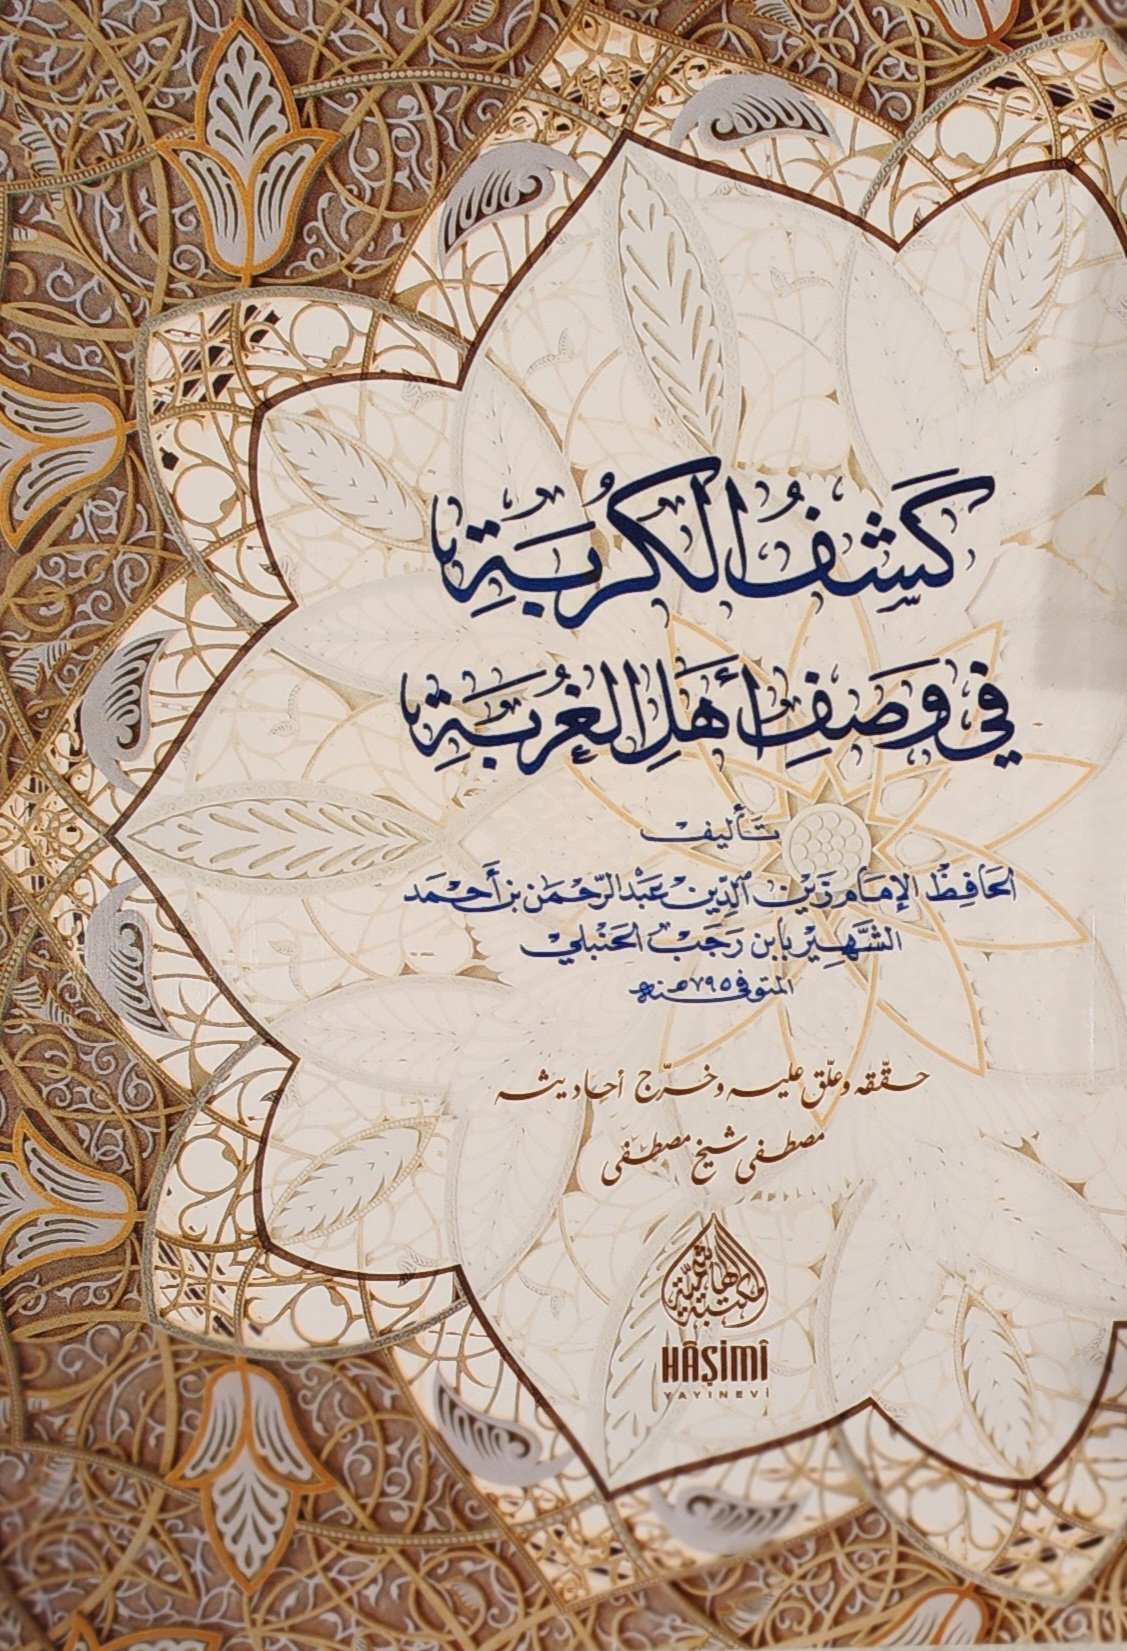 كَشْفُ الكُرْبَةِ
في وَصْفِ أَهْلِ الغُرْبَةِ
تأليف
الحَافِظْ الإمَام زَيْن الدِّين عَبْد الرَّحْمٰن بن أَحْمَد
الشَّهِيْر بابن رَجَبْ الحَنْبلي
المتوفى سنة ٧٩٥هـ
حقّقه وعلّق عليه وخرّج أحاديثه
مصطفى شيخ مصطفى
المكتبة الهاشمية
HÂŞİMÎ
YAYINEVİ